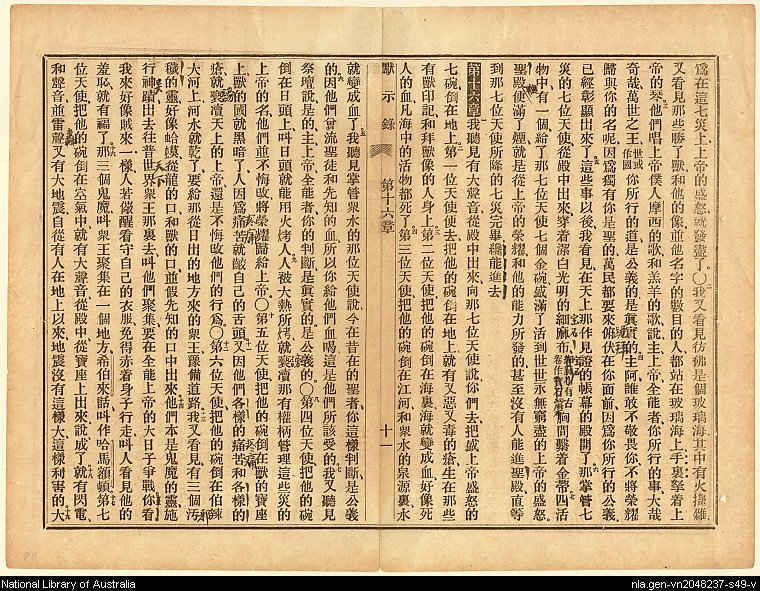 爲在這七災上上帝的盛怒就發盡了〇我又看見彷彿是個玻璃海其中有火攙雜
又看見那些勝了獸和他的像並他名字的數目的人都站在玻璃海上手裏拏着上
帝的琴他們唱上帝僕人摩西的歌和羔羊的歌說主上帝全能者你所行的事大哉
奇哉萬世之王世或作國你所行的道是公義的是眞實的主阿誰敢不敬畏你不將榮耀
歸與你的名呢因爲獨有你是聖的萬民都要來俯伏在你面前因爲你所行的公義
已經彰顯出來了這些事以後我看見在天上那作見證的帳幕的殿開了那掌管七
災的七位天使從殿中出來穿着潔白光明的細麻布胸間繫着金帶四活
物中有一個給了那七位天使七個金碗盛滿了活到世世永無窮盡的上帝的盛怒
聖殿便滿了煙就是從上帝的榮耀和他的能力所發的甚至沒有人能進聖殿直等
到那七位天使所降的七災完畢纔能進去
第十六章我聽見有大聲音從殿中出來向那七位天使說你們去把盛上帝盛怒的
七碗倒在地上第一位天使便去把他的碗倒在地上就有又惡又毒的瘡生在那些
有獸印記和拜獸像的人身上第二位天使把他的碗倒在海裏海就變成血好像死
人的血凡海中的活物都死了第三位天使把他的碗倒在江河和衆水的泉源裏水
默示錄 第十六章 十一
就變成血了我聽見掌管衆水的那位天使說今在昔在的聖者你這樣判斷是公義
的因他們曾流聖徒和先知的血所以你給他們血喝這是他們所該受的我又聽見
祭壇說是的主上帝全能者你的判斷是眞實的是公義的〇第四位天使把他的碗
倒在日頭上叫日頭就能用火烤人人被大熱所烤就褻瀆那有權柄管理這些災的
上帝的名他們並不悔改將榮耀歸給上帝〇第五位天使把他的碗倒在獸的寶座
上獸的國就黑暗了人因爲痛苦就齩自己的舌頭又因他們各樣的痛苦和各樣的
瘡就褻瀆天上的上帝還是不悔改他們的行爲〇第六位天使把他的碗倒在伯辣
大河上河水就乾了要給那從日出的地方來的衆王豫備道路我又看見有三個汚
穢的靈好像蛤蟆從龍的口和獸的口並假先知的口中出來他們本是鬼魔的靈施
行神蹟出去往普世界衆王那裏去叫他們聚集要在全能上帝的大日子爭戰你看
我來好像賊來一樣人若儆醒看守自己的衣服免得赤着身子行走叫人看見他的
羞恥就有福了那三個鬼魔叫衆王聚集在一個地方希伯來話叫作哈馬額頓第七
位天使把他的碗倒在空氣中就有大聲音從殿中從寶座上出來說成了就有閃電
和聲音並雷聲又有大地震自從有人在地上以來地震沒有這樣大這樣利害的大
National Library of Australia
nla.gen-vn2048237-s49-v